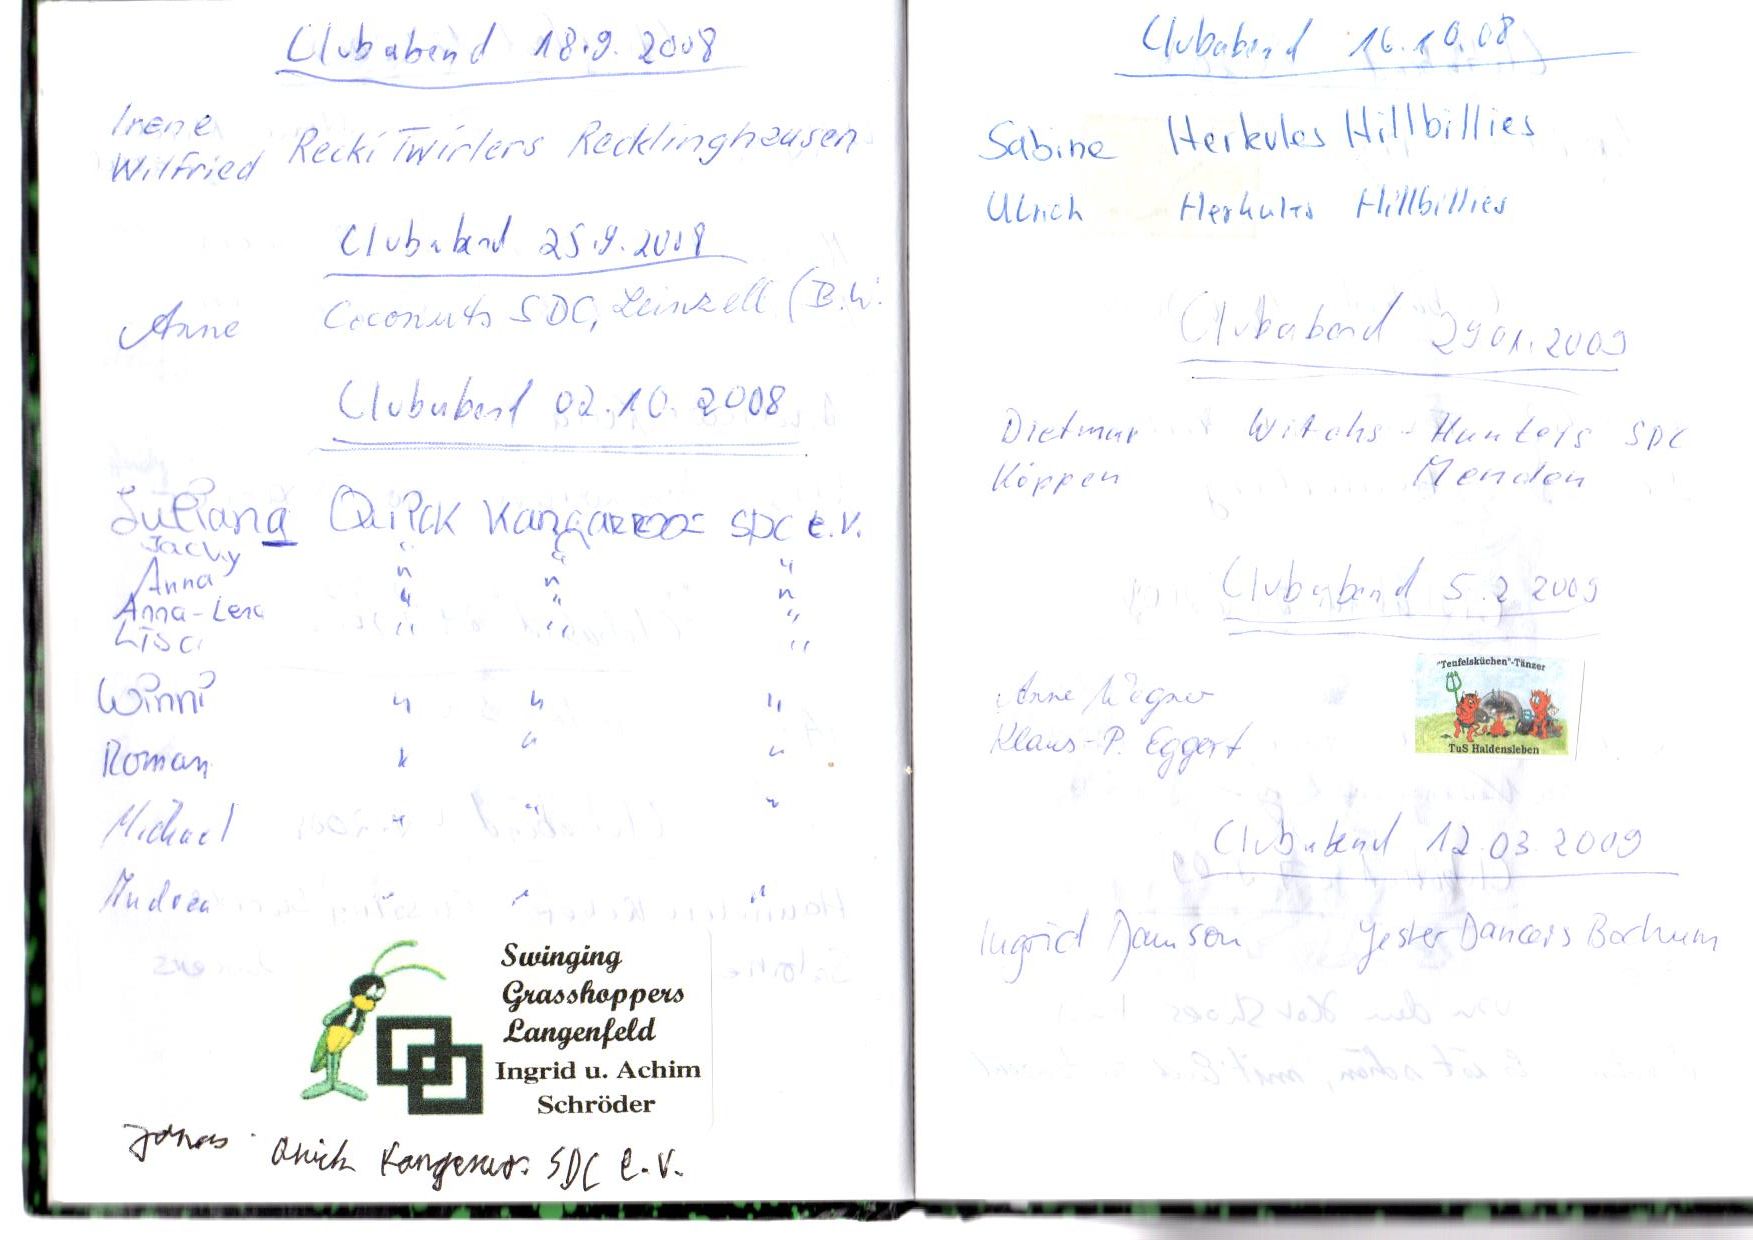 Clubabend 18.9.2008
Irene
Wilfried Recki Twirlers Recklinghausen
Clubabend 25.9.2008
Anne Coconuts SDC, Leinzell (B.W.
Clubabend 02.10.2008
Juliana Quick Kangaroos SDC e.V.
Jacky " " "
Anna " " "
Anna-Lena " " "
Lisa " " "
Winni " " "
Roman " " "
Michael " " "
Andrea " " "
Swinging
Grasshoppers
Langenfeld
Ingrid u. Achim
Schröder
Jonas Quick Kangeroos SDC e.V.
Clubabend 16.10.08
Sabine Herkules Hillbillies
Ulrich Herkules Hillbillies
Clubabend 29.01.2009
Dietmar Witchs-Hunters SDC
Köppen Menden
Clubabend 5.2.2009
Anne Wegner
Klaus-P. Eggert
"Teufelsküchen"-Tänzer
TuS Haldensleben
Clubabend 12.03.2009
Ingrid Damson Yester Dancers Bochum